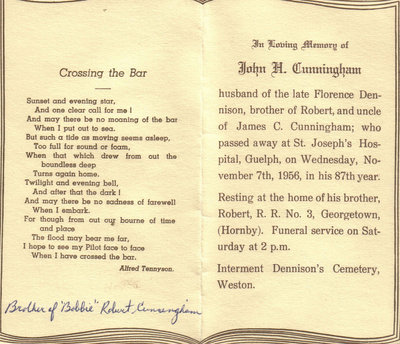 Crossing the Bar
Sunset and evening star,
And one clear call for me !
And may there be no moaning of the bar
When I put out to sea.
But such a tide as moving seems asleep,
Too full for sound or foam,
When that which drew from out the
boundless deep
Turns again home.
Twilight and evening bell,
And after that the dark !
And may there be no sadness of farewell
When I embark.
For though from out our bourne of time
and place
The flood may bear me far,
I hope to see my Pilot face to face
When I have crossed the bar.
Alfred Tennyson.
Brother of "Bobbie" Robert Cunningham
In Loving Memory of
John H. Cunningham
husband of the late Florence Den-
nison, brother of Robert, and uncle
of James C. Cunningham; who
passed away at St. Joseph's Hos-
pital, Guelph, on Wednesday, No-
vember 7th, 1956, in his 87th year.
Resting at the home of his brother,
Robert, R. R. No. 3, Georgetown,
(Hornby). Funeral service on Sat-
urday at 2 p.m.
Interment Dennison's Cemetery,
Weston.